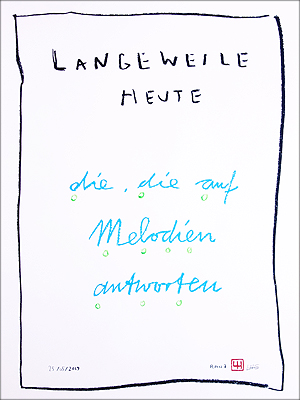 LANGEWEILE
HEUTE
die, die auf
Melodien
antworten